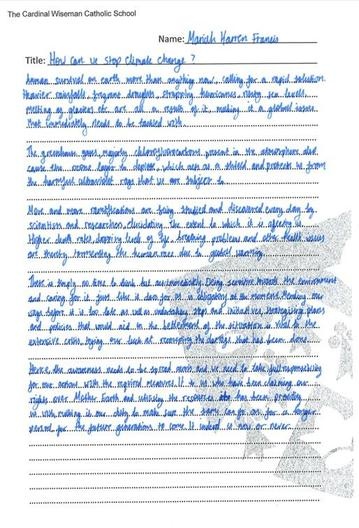 The Cardinal Wiseman Catholic School
Name: Mariah Harren Francis
Title: How can we stop climate change?
human survival on earth more than anything now, calling for a rapid solution.
Heavier rainfalls, frequent droughts, strapping hurricanes, rising sea levels,
melting of glaciers etc. are all a result of it, making it a global issue
that immediately needs to be tackled with.
The greenhouse gases, majorly chlorofluorocarbons present in the atmosphere also
cause the ozone layer to deplete, which acts as a shield and protects us from
the harmful ultraviolet rays that we are subject to.
More and more ramifications are being studied and discovered every day by
scientists and researchers, elucidating the extent to which it is affecting us.
Higher death rates, lowering levels of life, breathing problems and other health issues
are thereby tormenting the human race due to global warming.
There is simply no time to think but act immediately. Being sensitive towards the environment
and caring for it just like it does for us is obligatory at the moment. Mending our
ways before it is too late as well as undertaking steps and initiatives, strategising plans
and policies that would aid in the betterment of the situation is vital to the
extensive crisis, trying our luck at reversing the damage that has been done.
Hence, the awareness needs to be spread and we need to take full responsibility
for our actions with the required measures. It is us who have been claiming our
rights over Mother Earth and utilising the resources she has been providing
us with making it our duty to make sure the same can go on for a longer
period for the future generations to come. It indeed is now or never.